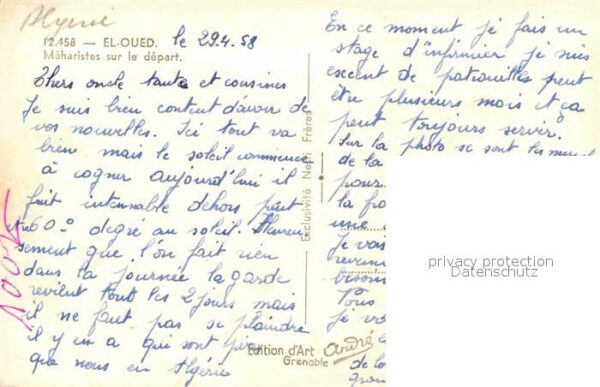 Algérie
12.458 — EL-OUED. le 29.4.58
Méharistes sur le départ.
Chers oncle tante et cousines
Je suis bien content d'avoir de
vos nouvelles. Ici tout va
bien mais le soleil commence
à cogner aujourd'hui il
fait intenable dehors peut
60° degré au soleil. Heureu
sement que l'on fait rien
dans la journée la garde
revient tout les 2 jours mais
il ne faut pas se plaindre
il y en a qui sont pire
que nous en Algérie
100%
Exclusivité Nefti Frères
Edition d'Art
Grenoble
André
En ce moment je fais un
stage d'infirmier je suis
exent de patrouilles peut
être plusieurs mois et ça
peut toujours servir.
Sur la photo se sont les
de la
pour
la
une
Je vas
revenir
besoin
Vous
Je
de
privacy protection
Datenschutz